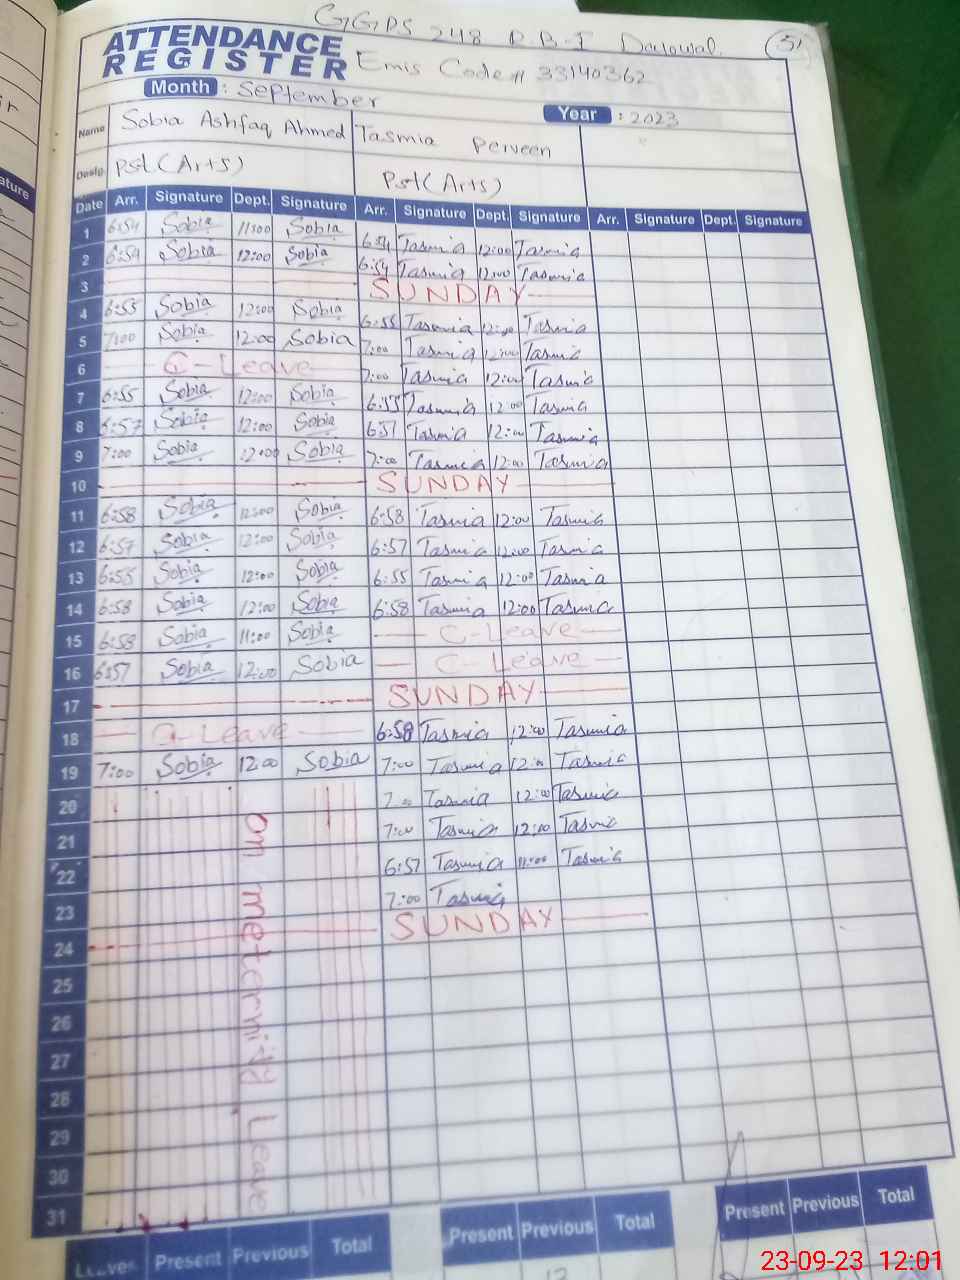 GGPS 248 R.B-I Dayowal 51
ATTENDANCE
REGISTER Emis Code # 33140362
Month : September
Year : 2023
Name Sobia Ashfaq Ahmed Tasmia Perveen
Desig. Pst (Arts) Pst (Arts)
Date Arr. Signature Dept. Signature Arr. Signature Dept. Signature Arr. Signature Dept. Signature
1 6:54 Sobia 11:00 Sobia 6:54 Tasmia 12:00 Tasmia
2 6:54 Sobia 12:00 Sobia 6:54 Tasmia 12:00 Tasmia
3 SUNDAY
4 6:55 Sobia 12:00 Sobia 6:55 Tasmia 12:00 Tasmia
5 7:00 Sobia 12:00 Sobia 7:00 Tasmia 12:00 Tasmia
6 C-Leave 7:00 Tasmia 12:00 Tasmia
7 6:55 Sobia 12:00 Sobia 6:55 Tasmia 12:00 Tasmia
8 6:57 Sobia 12:00 Sobia 6:57 Tasmia 12:00 Tasmia
9 7:00 Sobia 12:00 Sobia 7:00 Tasmia 12:00 Tasmia
10 SUNDAY
11 6:58 Sobia 12:00 Sobia 6:58 Tasmia 12:00 Tasmia
12 6:57 Sobia 12:00 Sobia 6:57 Tasmia 12:00 Tasmia
13 6:55 Sobia 12:00 Sobia 6:55 Tasmia 12:00 Tasmia
14 6:58 Sobia 12:00 Sobia 6:58 Tasmia 12:00 Tasmia
15 6:58 Sobia 11:00 Sobia C-Leave
16 6:57 Sobia 12:00 Sobia C-Leave
17 SUNDAY
18 C-Leave 6:58 Tasmia 12:00 Tasmia
19 7:00 Sobia 12:00 Sobia 7:00 Tasmia 12:00 Tasmia
20 7:00 Tasmia 12:00 Tasmia
21 7:00 Tasmia 12:00 Tasmia
22 6:57 Tasmia 11:00 Tasmia
23 7:00 Tasmia
24 SUNDAY
25
26
27
28
29
30
31
on meternity Leave
Leaves Present Previous Total Present Previous Total Present Previous Total
23-09-23 12:01